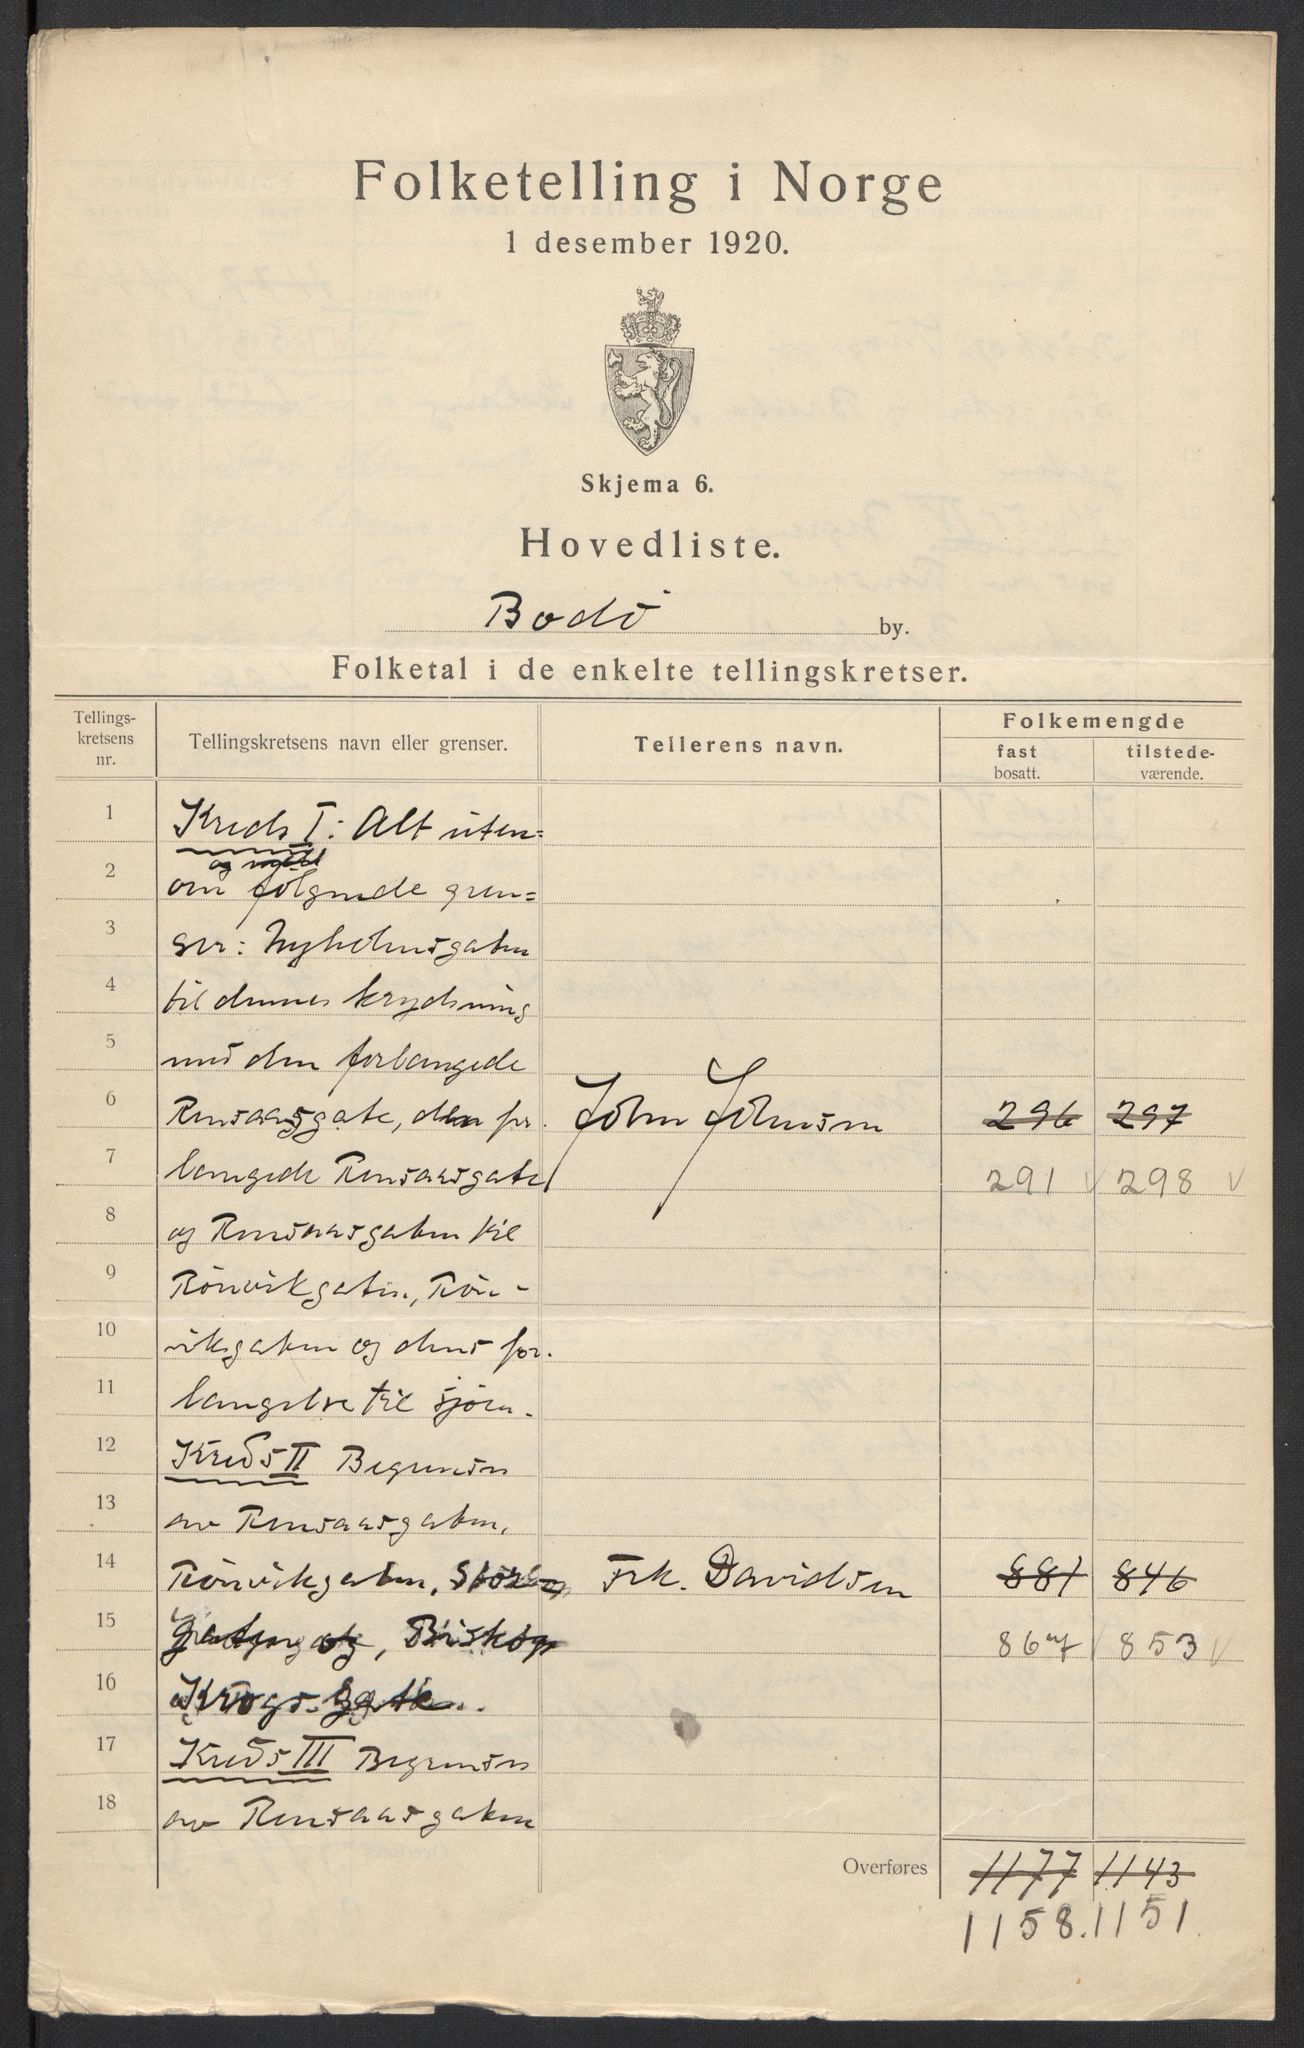 Folketelling i Norge
1 desember 1920.
Skjema 6.
Hovedliste.
Bodö by.
Folketal i de enkelte tellingskretser.
Tellings-kretsens nr. Tellingskretsens navn eller grenser. Tellerens navn. Folkemengde
fast bosatt. tilstede-værende.
1 Kreds I: Alt uten-
og
2 om følgende gren=
3 ser: Nyholmsgaten
4 til dennes krydsning
5 med den forlængede
6 Rensaasgate, den for- John Johnsen 296 297
7 længede Rensaasgate 291 298
8 og Rensaasgaten til
9 Rönvikgaten, Rön-
10 vikgaten og dens for-
11 længelse til sjöen.
12 Kreds II Begrenses
13 av Rensaasgaten,
14 Rönvikgaten, Frk. Davidsen 881 846
15 Biskop 867 853
16 Krogs Gate.
17 Kreds III Begrenses
18 av Rensaasgaten
Overføres 1177 1143
1158. 1151.